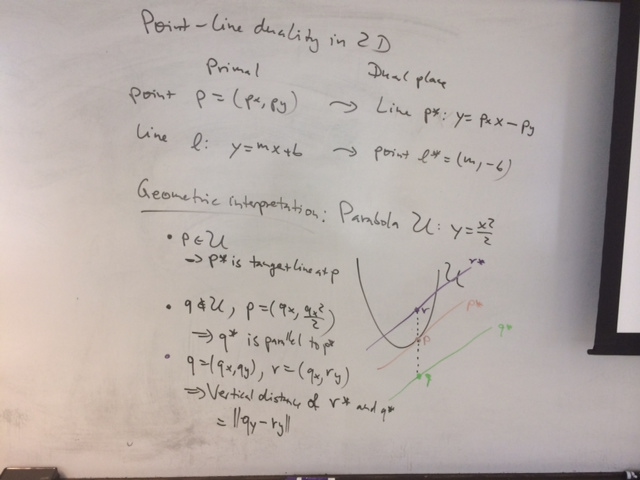 Point-Line duality in 2D
Primal Dual plane
point p = (px, py) → Line p*: y = px x - py
Line l: y = mx + b → point l* = (m, -b)
Geometric interpretation: Parabola U: y = x²/2
• p ∈ U
⇒ p* is tangent line at p
• q ∉ U, p = (qx, qx²/2)
⇒ q* is parallel to p*
• q = (qx, qy), r = (qx, ry)
⇒ Vertical distance of r* and q*
= ||qy - ry||
U
r*
r
p*
p
q*
q